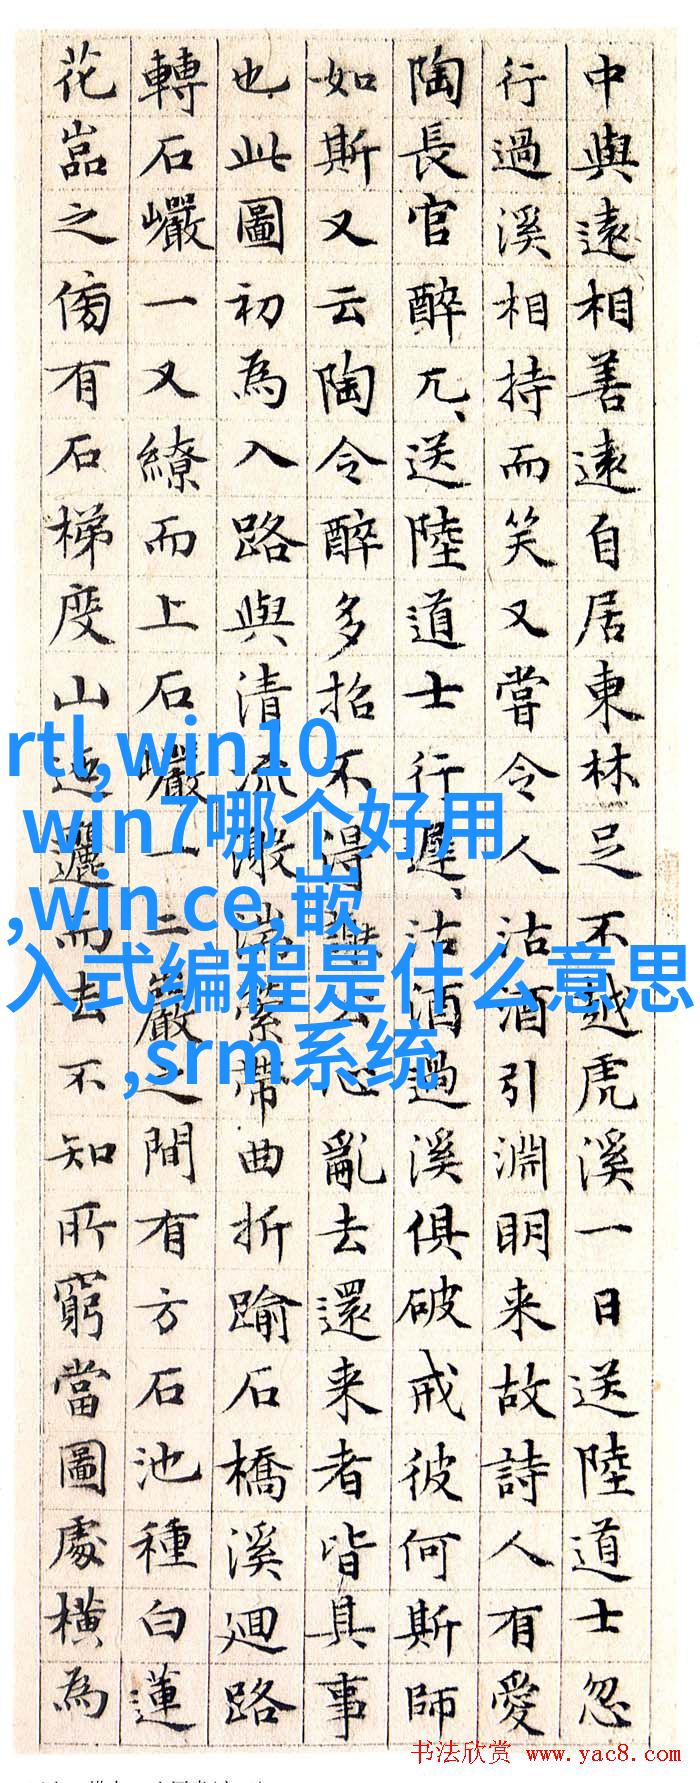 中與遠相善遠自居東林足不越虎溪一日送陸道士忽
行過溪相持而笑又嘗令人沽酒引淵明来故詩人有愛
陶長官醉兀、送陸道士行遲、沽酒過溪俱破戒彼何斯師
如斯又云陶令醉多招不得謝公心亂去還来者皆其事
也此圖初為入路與清流激湍縈帶曲折踰石橋溪廻路
轉石巗一又繚而上石巗一二巖之間有方石池種白蓮
花嵓之傍有石梯度山迤邐而去不知所窮當圖處横為
rtl,win10
win7哪个好用
,win ce,嵌
入式编程是什么意思
,srm系统
书法欣赏 www.yac8.com